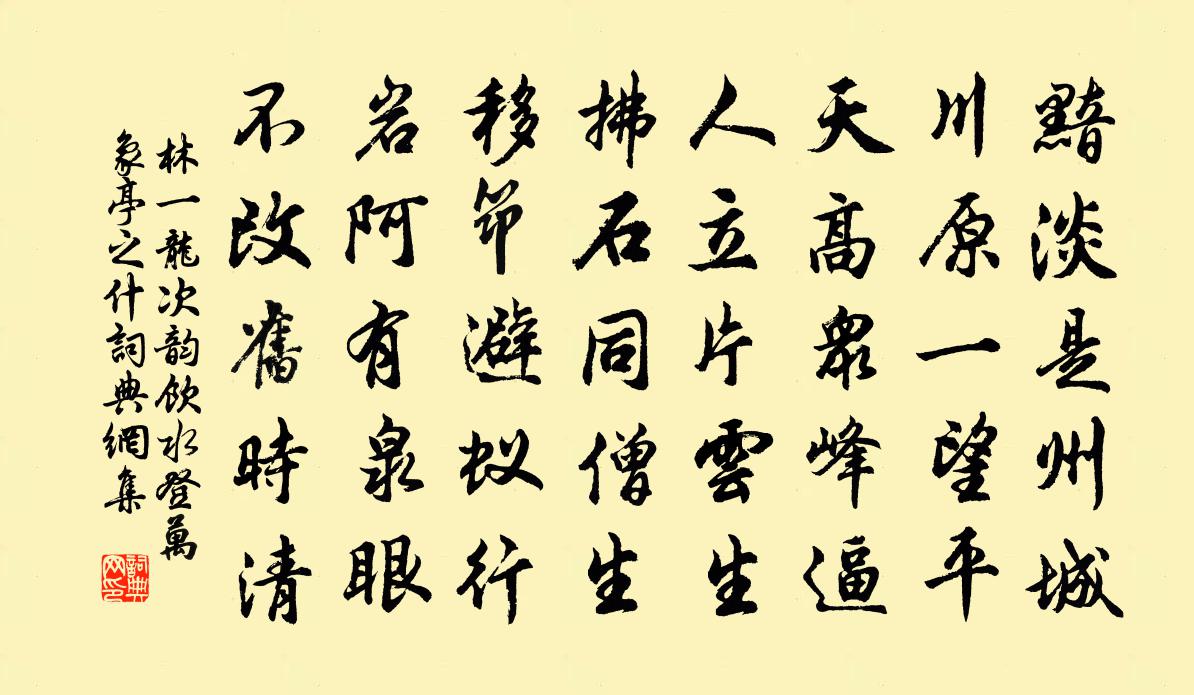 黯淡是州城
川原一望平
天高眾峰逼
人立片雲生
拂石同僧生
移笻避蚁行
岩阿有泉眼
不改舊時清
林一龍次韵飲水登萬
象亭之什詞典網集
詞典网印